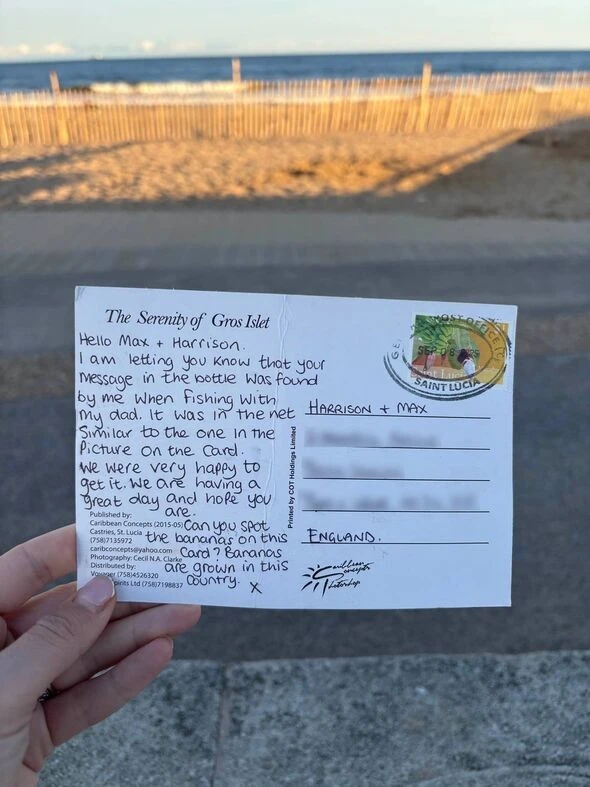 The Serenity of Gros Islet
Hello Max + Harrison.
I am letting you know that your
message in the bottle was found
by me when fishing with
my dad. It was in the net
similar to the one in the
picture on the card.
We were very happy to
get it. We are having a
great day and hope you
are.
Can you spot
the bananas on this
card? Bananas
are grown in this
country. x
Published by:
Caribbean Concepts (2015-05)
Castries, St. Lucia
(758)7135972
caribconcepts@yahoo.com
Photography: Cecil N.A. Clarke
Distributed by:
Voyager (758)4526320
pirits Ltd (758)7198837
Printed by COT Holdings Limited
HARRISON + MAX
ENGLAND.
POST OFFICE
SEP 08
Saint Lucia
SAINT LUCIA
Caribbean
Concepts